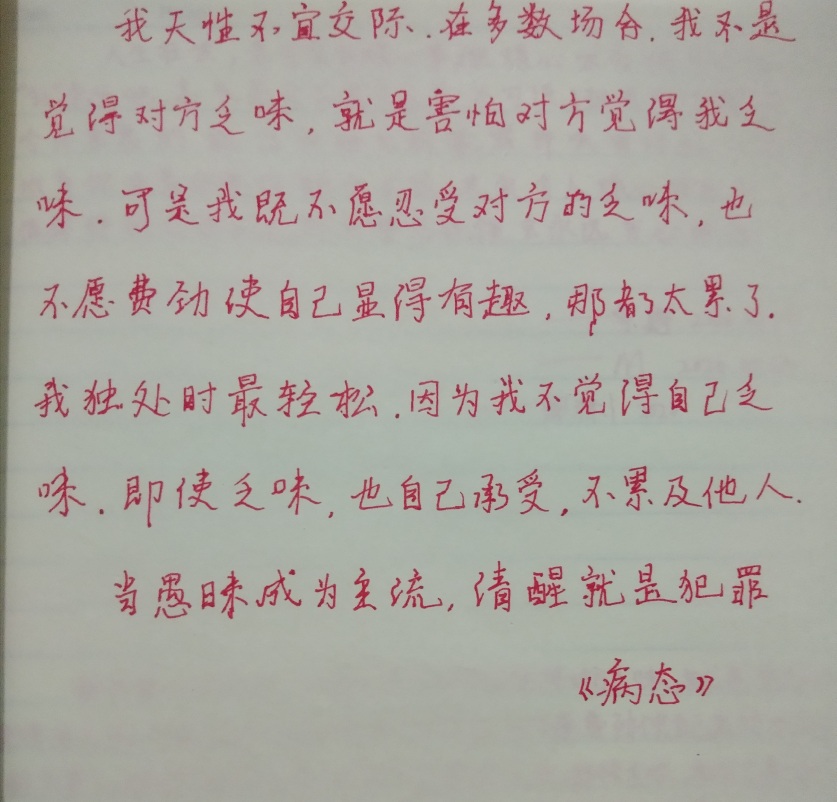 我天性不宜交际.在多数场合.我不是
觉得对方乏味,就是害怕对方觉得我乏
味.可是我既不愿忍受对方的乏味,也
不愿费劲使自己显得有趣,那都太累了.
我独处时最轻松.因为我不觉得自己乏
味.即使乏味,也自己承受,不累及他人.
当愚昧成为主流,清醒就是犯罪
《病态》